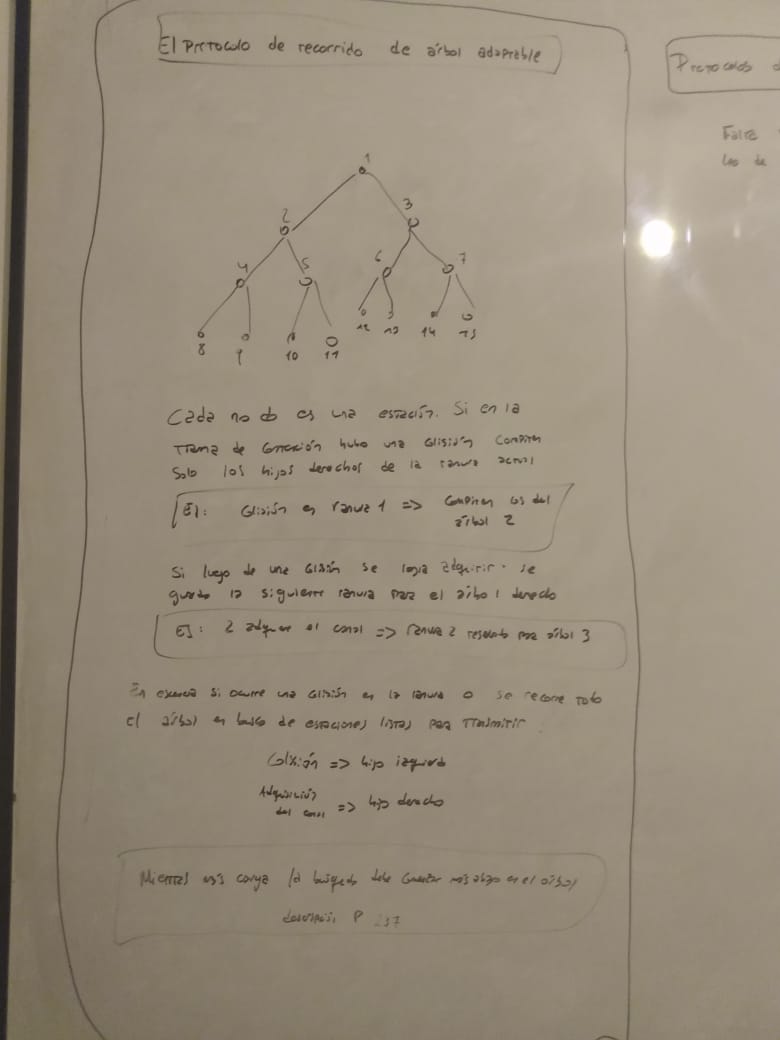 El Protocolo de recorrido de árbol adaptable
Protocolos d
Falta
los de
1
2
3
4
5
6
7
8
9
10
11
12
13
14
15
Cada nodo es una estación. Si en la
trama de contención hubo una colisión compiten
solo los hijos derechos de la ranura actual
Ej: Colisión en ranura 1 => compiten los del
árbol 2
Si luego de una colisión se logra adquirir se
guarda la siguiente ranura para el árbol derecho
Ej: 2 adquiere el canal => ranura 2 para árbol 3
En esencia si ocurre una colisión en la ranura 0 se recorre todo
el árbol en busca de estaciones listas para transmitir
Colisión => hijo izquierdo
Adquisición
del canal => hijo derecho
Mientras más carga la búsqueda debe comenzar más abajo en el árbol
P 237